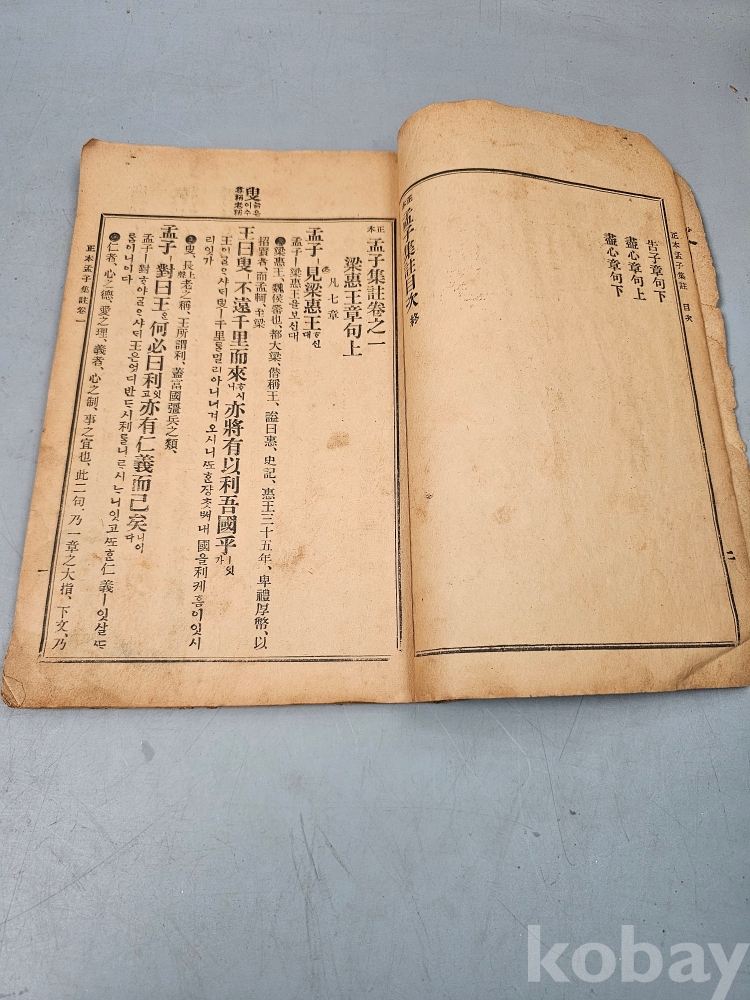 告子章句下
盡心章句上
盡心章句下
正本 孟子集註目次 終
正本孟子集註 目次
二
叟 늙은이수
尊稱老稱
正本 孟子集註卷之一
梁惠王章句上
凡七章
孟子ㅣ見梁惠王ᄒᆞ신대
孟子ㅣ梁惠王을보신대
梁惠王、魏侯罃也、都大梁、僭稱王、諡曰惠、史記、惠王三十五年、卑禮厚幣、以
招賢者、而孟軻、至梁
王曰叟ㅣ不遠千里而來ᄒᆞ시니亦將有以利吾國乎ㅣ잇가
王이ᄀᆞᆯᄋᆞ샤ᄃᆡ叟ㅣ千里ᄅᆞᆯ멀리아니너겨오시니ᄯᅩᄒᆞᆫ쟝ᄎᆞᆺᄡᅥ내國을利케ᄒᆞᆷ이잇시
리잇가
叟、長老之稱、王所謂利、蓋富國彊兵之類、
長上聲
孟子ㅣ對曰王은何必曰利잇고亦有仁義而已矣니이다
孟子ㅣ對ᄒᆞ야ᄀᆞᆯᄋᆞ샤ᄃᆡ王은엇디반ᄃᆞ시利ᄅᆞᆯ니ᄅᆞ시ᄂᆞ니잇고ᄯᅩᄒᆞᆫ仁義ㅣ잇살ᄯᆞ
ᄅᆞᆷ이니이다
仁者、心之德、愛之理、義者、心之制、事之宜也、此二句、乃一章之大指、下文、乃
正本孟子集註卷一
一
kobay